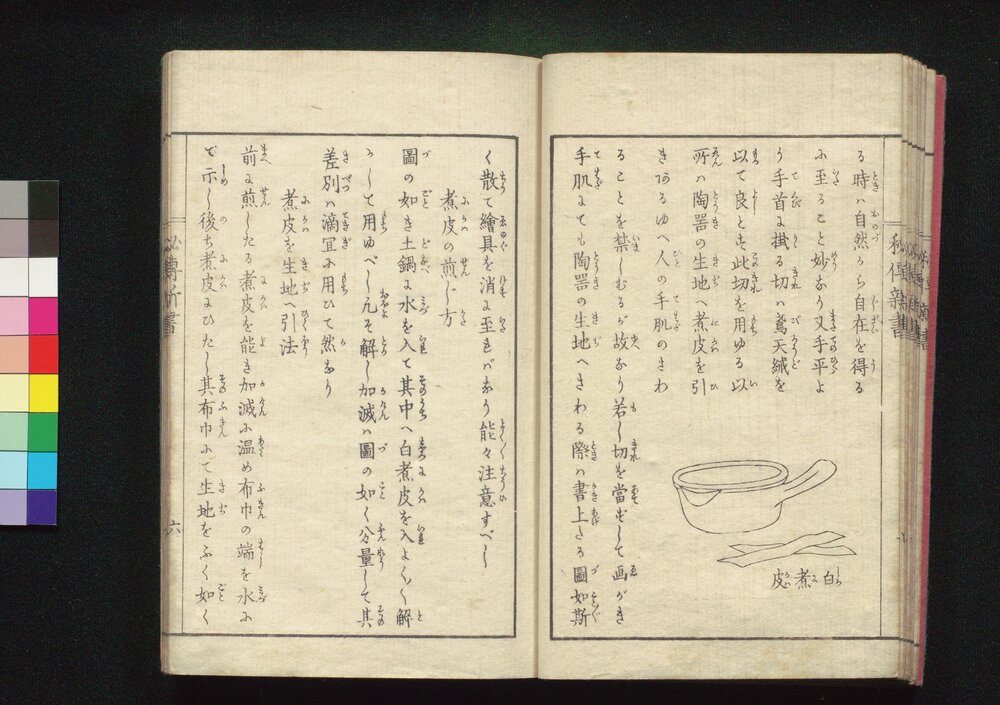 る時ハ自然から自在を得る
に至ること妙なり又手平よ
り手首に掛る切ハ鳶天絨を
以て良とす此切を用ゆる以
所ハ陶噐の生地へ煮皮を引
きあるゆへ人の手肌のさわ
ることを禁しむるが故なり若し切を當ずして画がき
手肌にても陶噐の生地へさわる際ハ書上たる圖如斯
白煮皮
く散て繪具を消に至ればなり能々注意すべし
煮皮の煎じ方
圖の如き土鍋に水を入て其中へ白煮皮を入よく〳〵解
かして用ゆべし凡そ解し加減ハ圖の如く分量して其
差別ハ滴宜に用ひて然なり
煮皮を生地へ引法
前に煎したる煮皮を能き加減に温め布巾の端を水に
て示し後ち煮皮にひたし其布巾にて生地をふく如く
六